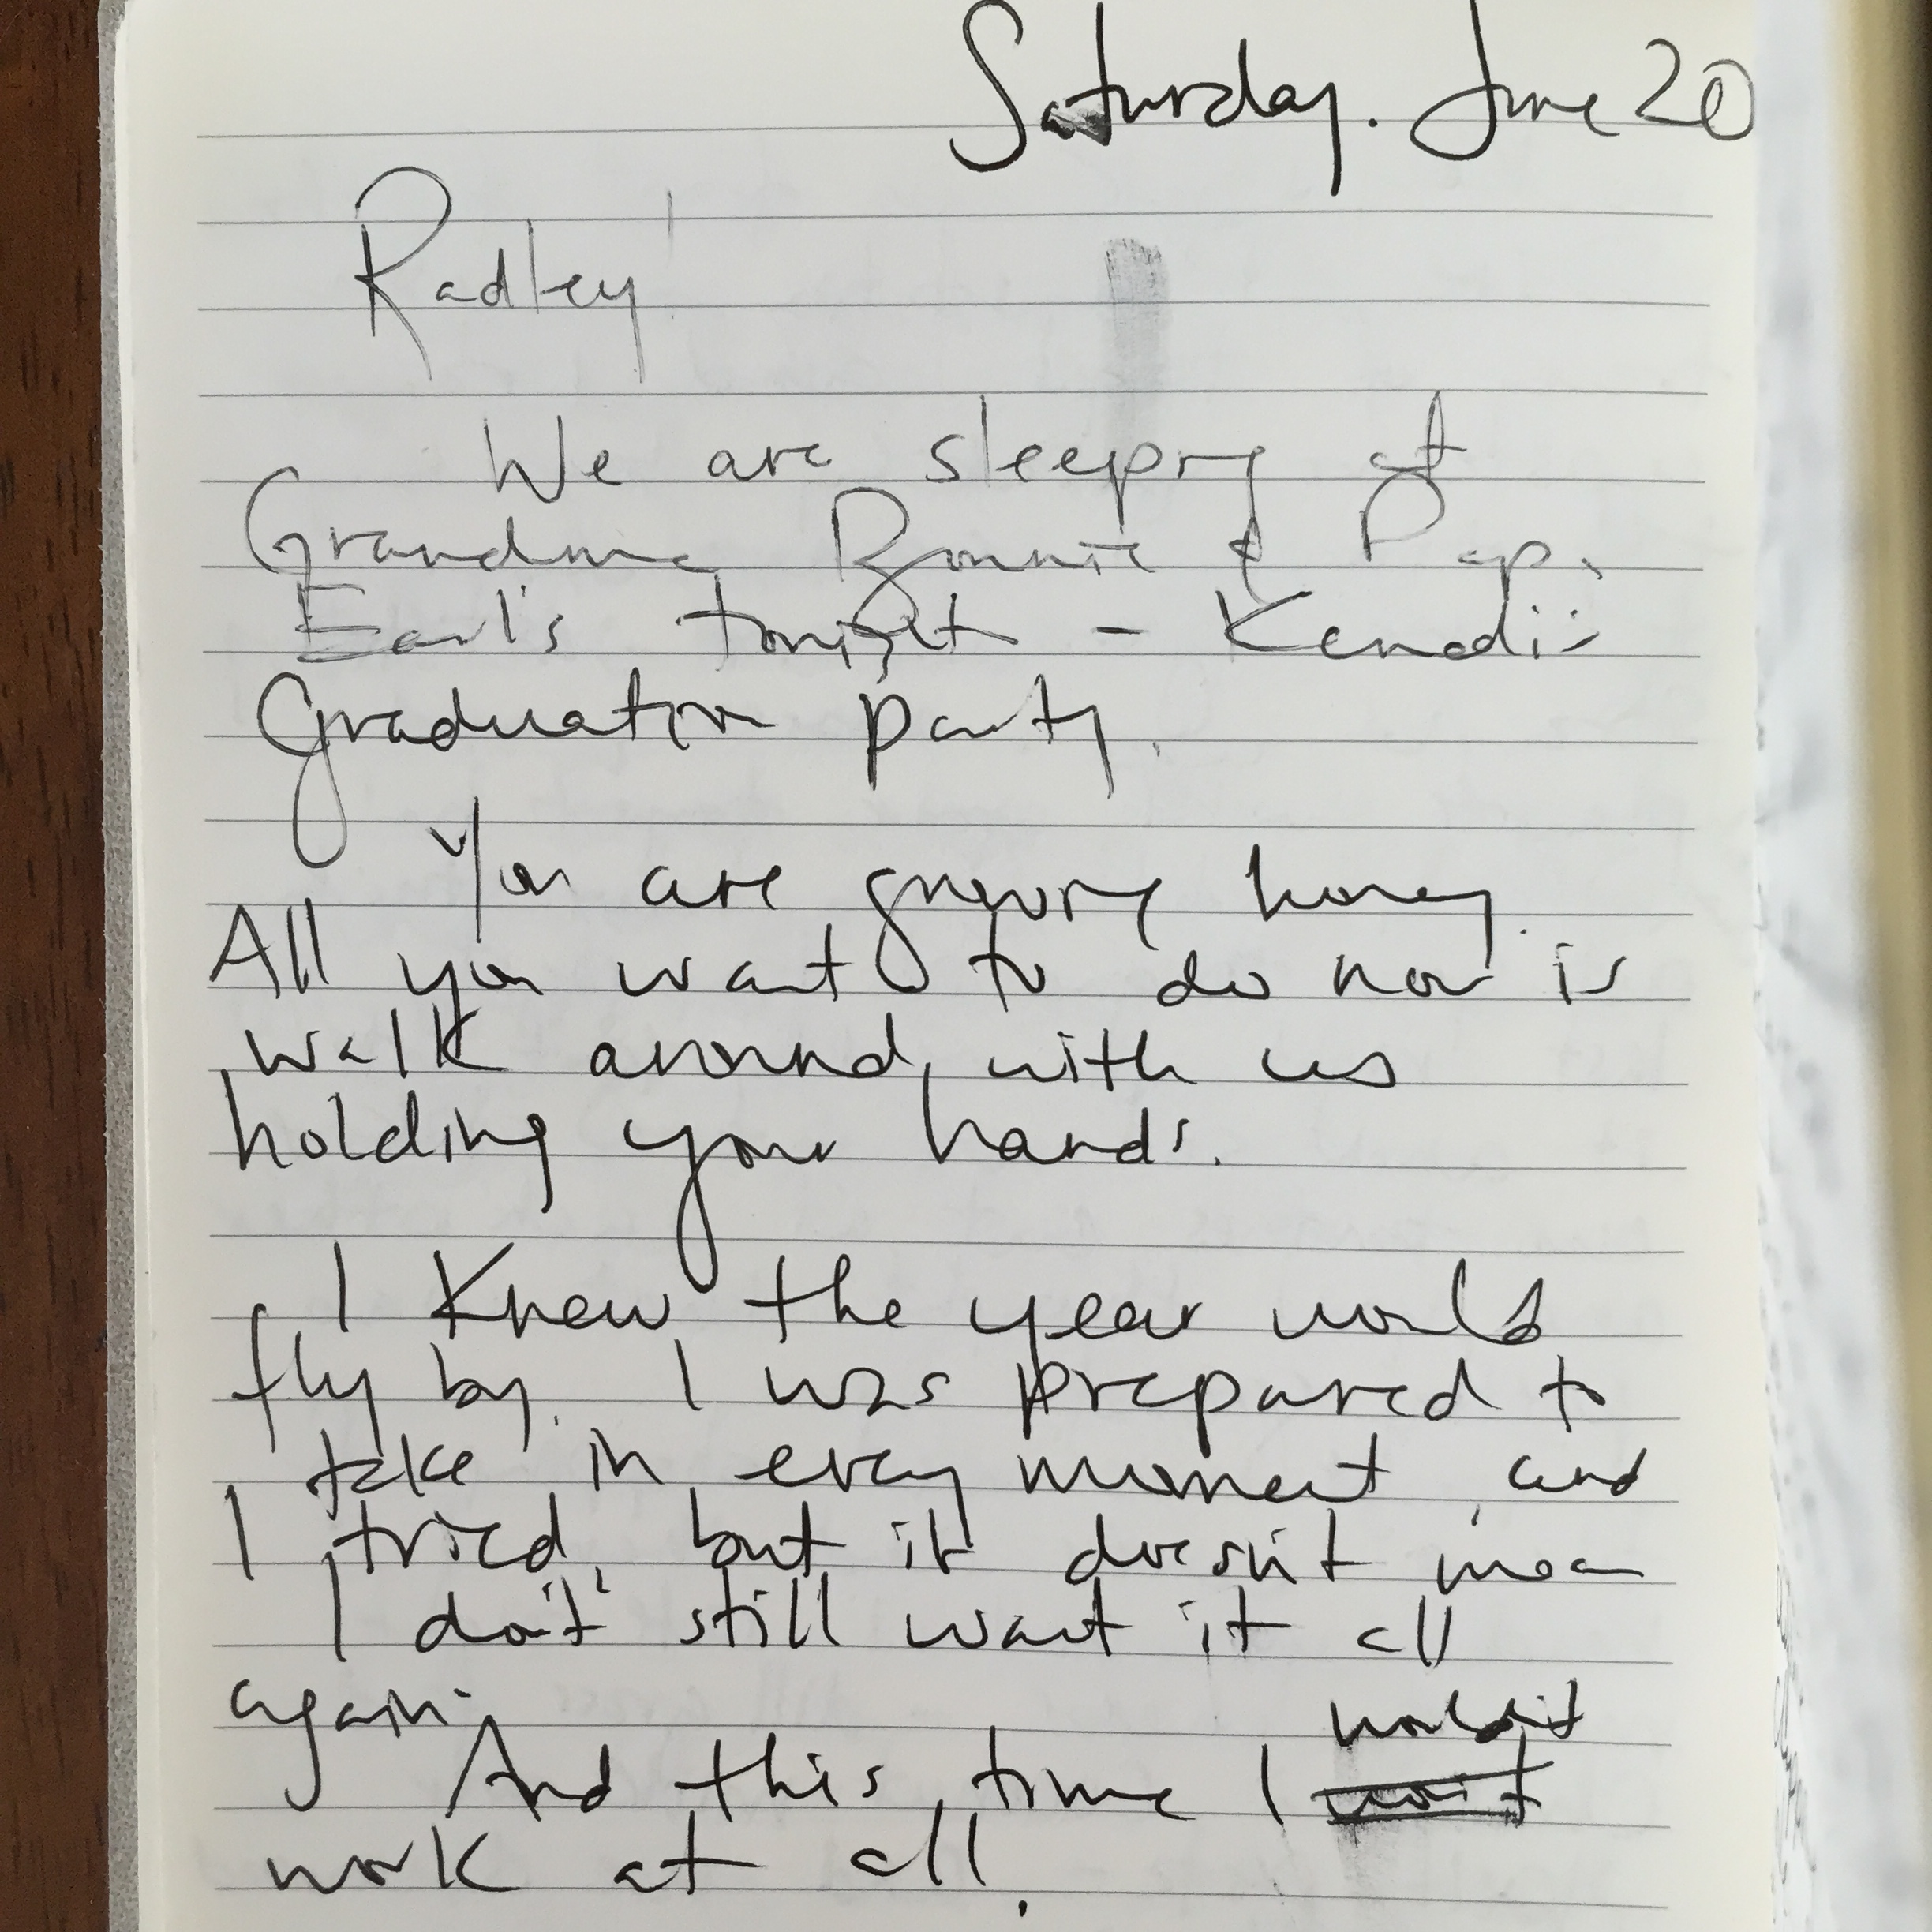 Saturday. June 20
Radley
We are sleeping at
Grandma Bonnie & Papa
Earl's tonight - Kenadi's
Graduation party.
You are growing honey.
All you want to do now is
walk around, with us
holding your hands.
I knew the year would
fly by. I was prepared to
take in every moment, and
I tried, but it doesn't mean
I don't still want it all
again. wouldn't
And this time I won't
work at all.